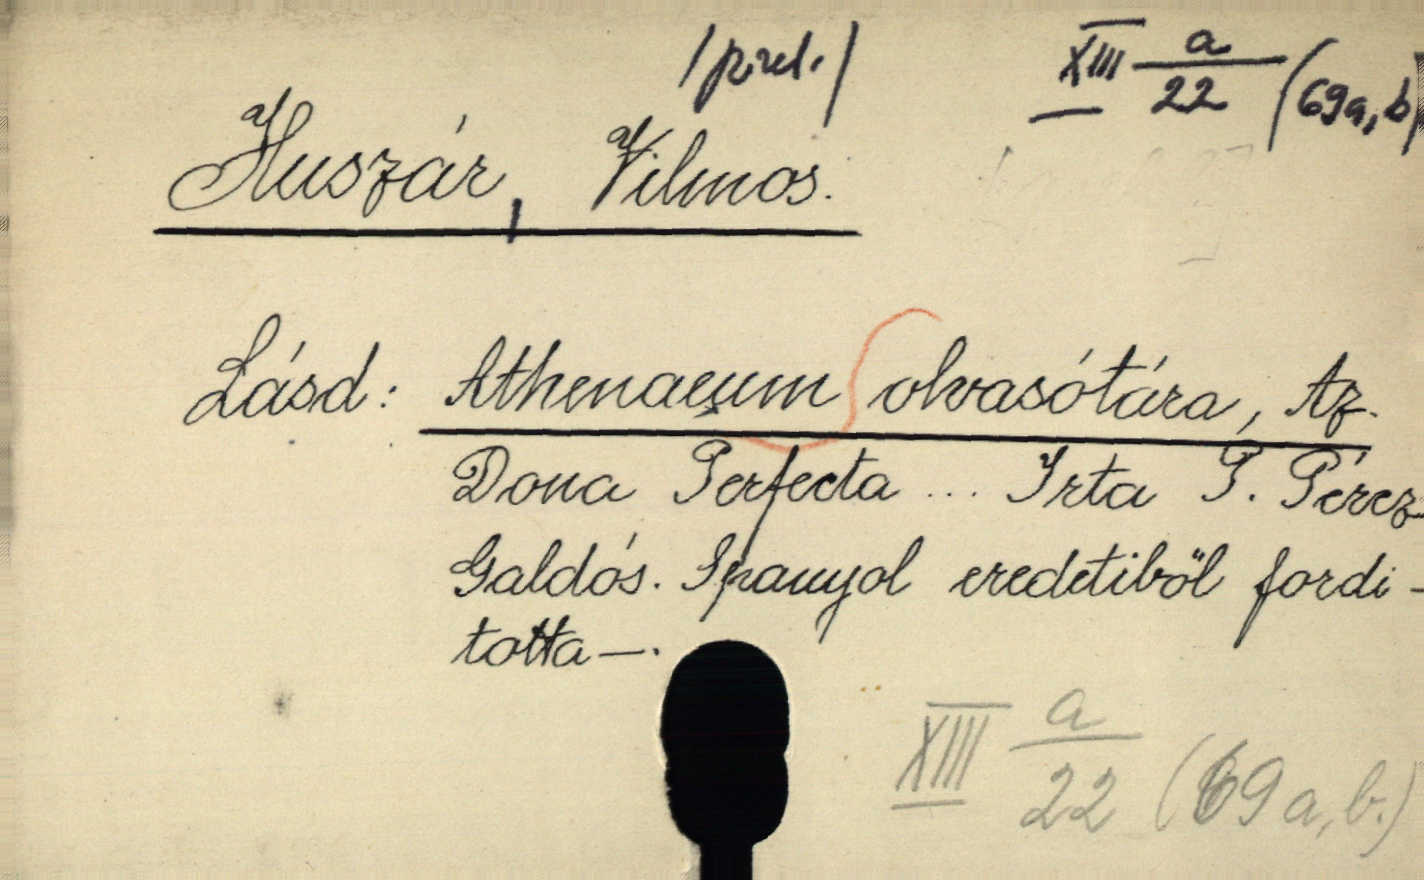 XIII a/22 (69a,b)
Huszár, Vilmos.
Lásd: Athenaeum olvasótára, Az.
Dona Perfecta ... Irta P. Pérez-
Galdós. Spanyol eredetiből fordi-
totta —.
XIII a/22 (69a,b.)